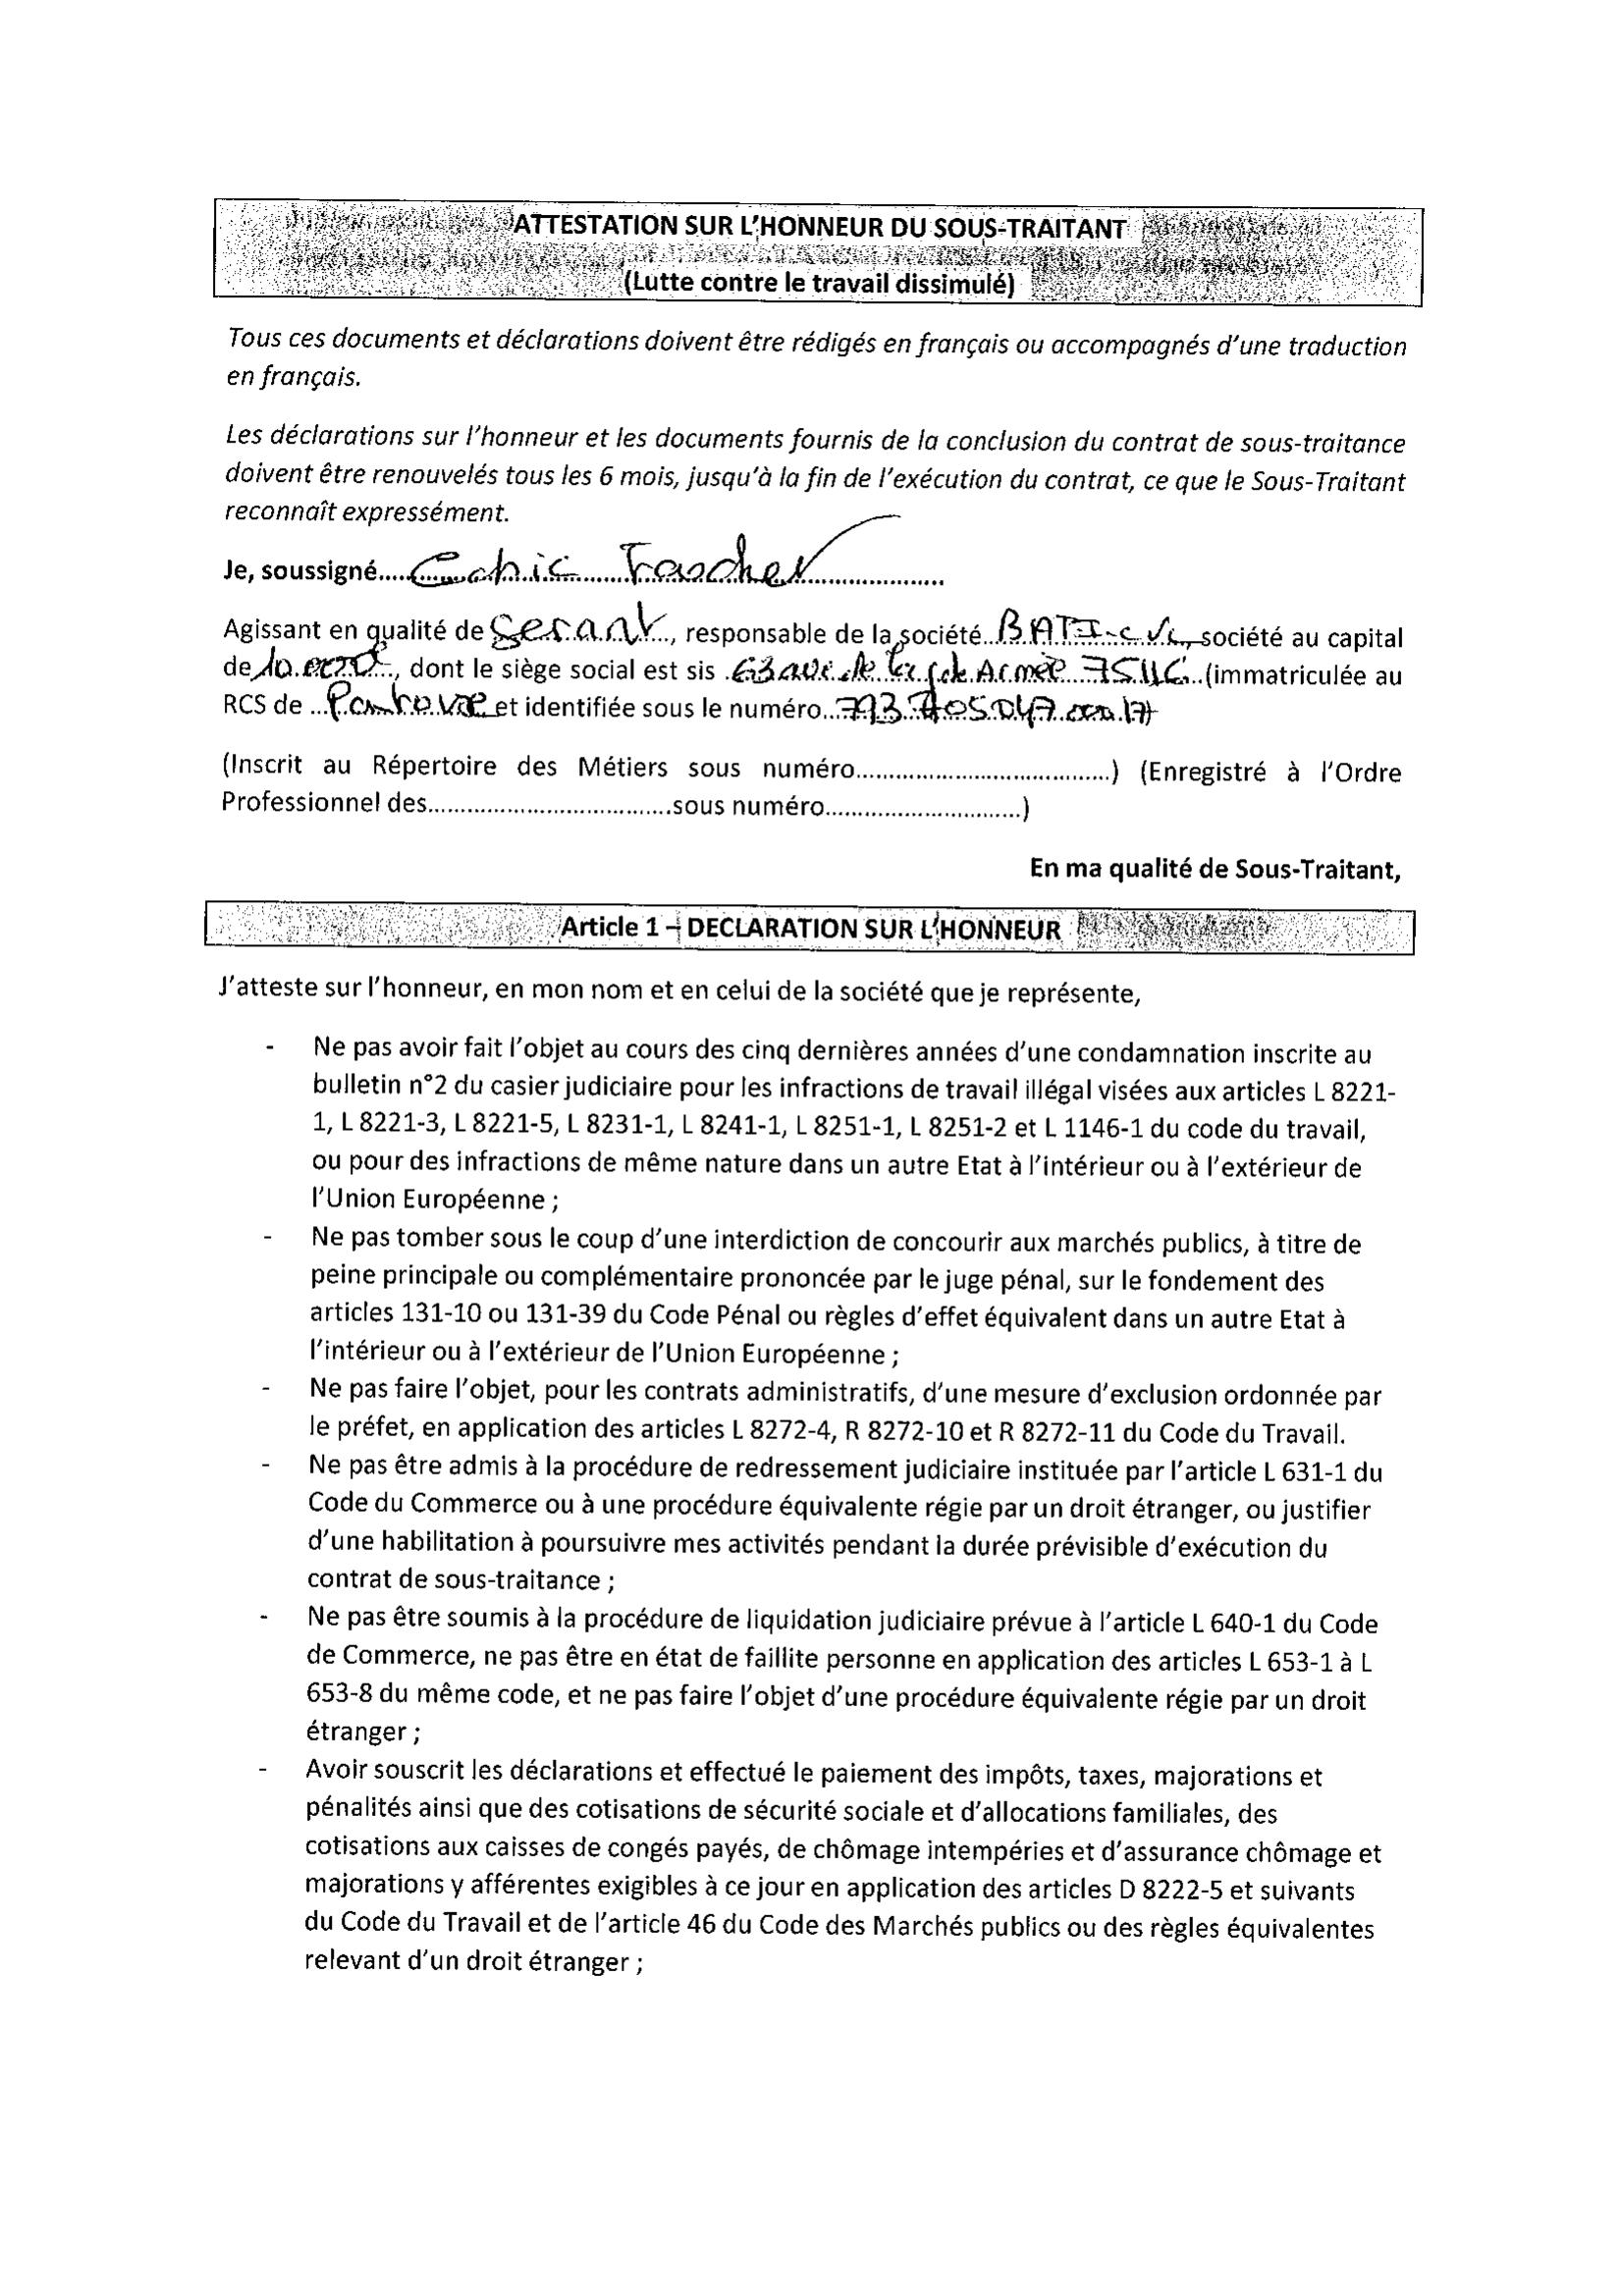 ATTESTATION SUR L'HONNEUR DU SOUS-TRAITANT
(Lutte contre le travail dissimulé)
Tous ces documents et déclarations doivent être rédigés en français ou accompagnés d'une traduction
en français.
Les déclarations sur l'honneur et les documents fournis de la conclusion du contrat de sous-traitance
doivent être renouvelés tous les 6 mois, jusqu'à la fin de l'exécution du contrat, ce que le Sous-Traitant
reconnaît expressément.
Je, soussigné.....
Agissant en qualité de gerant, responsable de la société BATI-, société au capital
de 10.000€, dont le siège social est sis 63 de Armée 75116 (immatriculée au
RCS de Pontoise et identifiée sous le numéro 793 705 047 00017)
(Inscrit au Répertoire des Métiers sous numéro......................................) (Enregistré à l'Ordre
Professionnel des.....................................sous numéro..............................)
En ma qualité de Sous-Traitant,
Article 1 – DECLARATION SUR L'HONNEUR
J'atteste sur l'honneur, en mon nom et en celui de la société que je représente,
- Ne pas avoir fait l'objet au cours des cinq dernières années d'une condamnation inscrite au
bulletin n°2 du casier judiciaire pour les infractions de travail illégal visées aux articles L 8221-
1, L 8221-3, L 8221-5, L 8231-1, L 8241-1, L 8251-1, L 8251-2 et L 1146-1 du code du travail,
ou pour des infractions de même nature dans un autre Etat à l'intérieur ou à l'extérieur de
l'Union Européenne ;
- Ne pas tomber sous le coup d'une interdiction de concourir aux marchés publics, à titre de
peine principale ou complémentaire prononcée par le juge pénal, sur le fondement des
articles 131-10 ou 131-39 du Code Pénal ou règles d'effet équivalent dans un autre Etat à
l'intérieur ou à l'extérieur de l'Union Européenne ;
- Ne pas faire l'objet, pour les contrats administratifs, d'une mesure d'exclusion ordonnée par
le préfet, en application des articles L 8272-4, R 8272-10 et R 8272-11 du Code du Travail.
- Ne pas être admis à la procédure de redressement judiciaire instituée par l'article L 631-1 du
Code du Commerce ou à une procédure équivalente régie par un droit étranger, ou justifier
d'une habilitation à poursuivre mes activités pendant la durée prévisible d'exécution du
contrat de sous-traitance ;
- Ne pas être soumis à la procédure de liquidation judiciaire prévue à l'article L 640-1 du Code
de Commerce, ne pas être en état de faillite personne en application des articles L 653-1 à L
653-8 du même code, et ne pas faire l'objet d'une procédure équivalente régie par un droit
étranger ;
- Avoir souscrit les déclarations et effectué le paiement des impôts, taxes, majorations et
pénalités ainsi que des cotisations de sécurité sociale et d'allocations familiales, des
cotisations aux caisses de congés payés, de chômage intempéries et d'assurance chômage et
majorations y afférentes exigibles à ce jour en application des articles D 8222-5 et suivants
du Code du Travail et de l'article 46 du Code des Marchés publics ou des règles équivalentes
relevant d'un droit étranger ;